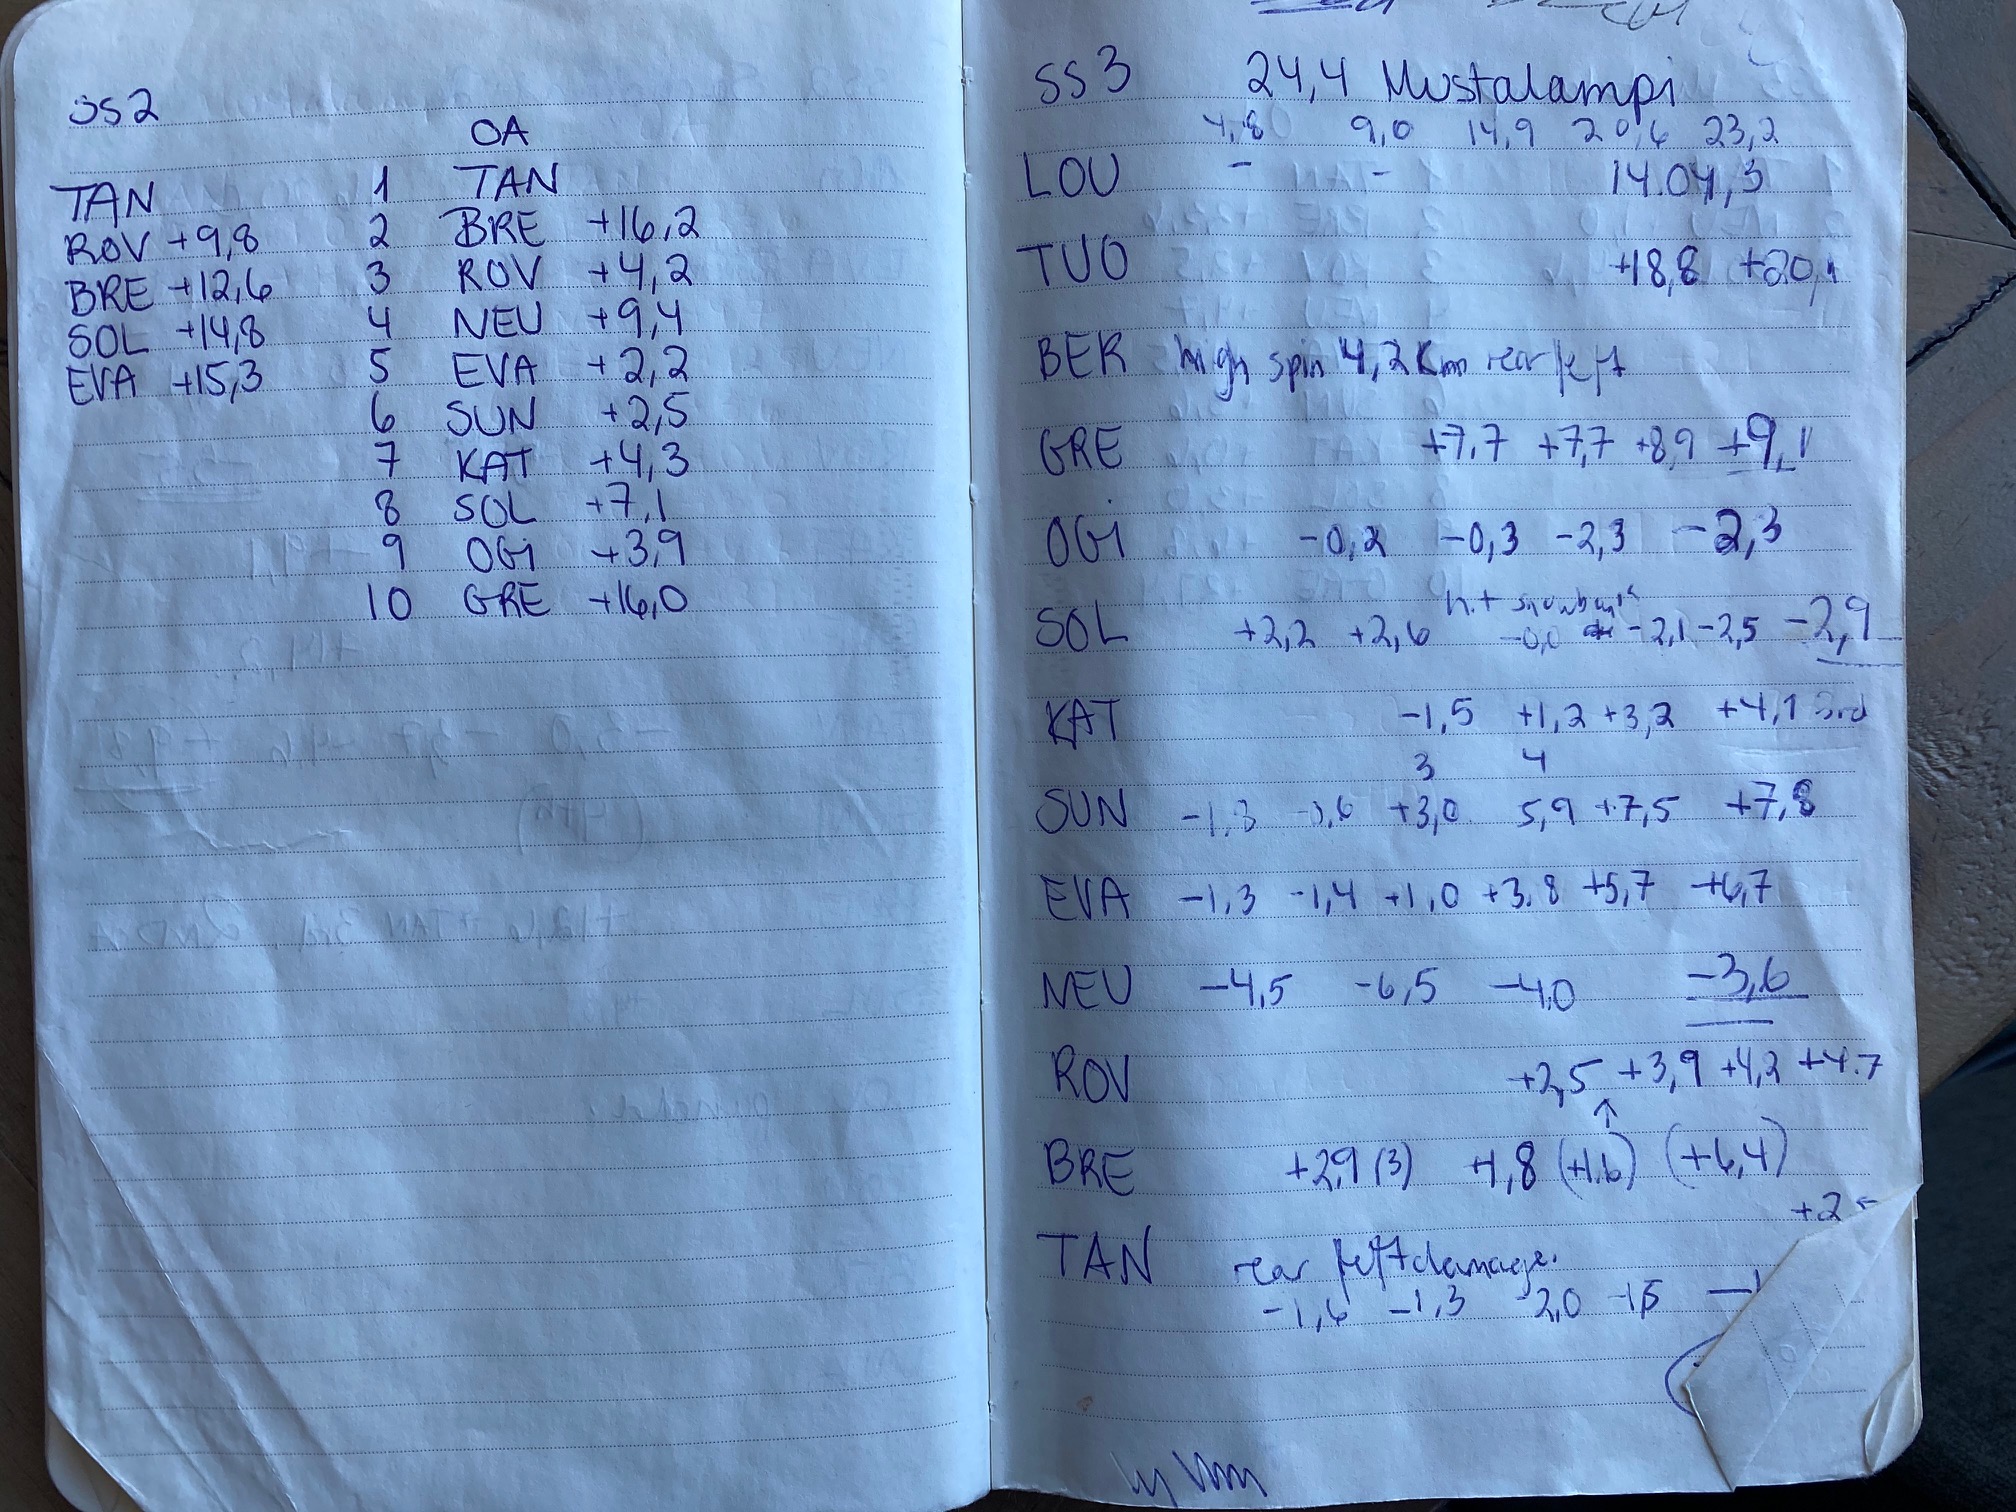 SS2
OA
TAN 1 TAN
ROV +9,8 2 BRE +16,2
BRE +12,6 3 ROV +4,2
SOL +14,8 4 NEU +9,4
EVA +15,3 5 EVA +2,2
6 SUN +2,5
7 KAT +4,3
8 SOL +7,1
9 OGi +3,9
10 GRE +16,0
SS3 24,4 Mustalampi
4,8 9,0 14,9 20,6 23,2
LOU - - 14.04,3
TUO +18,8 +20,1
BER high spin 4,2 Km rear left
GRE +7,7 +7,7 +8,9 +9,1
OGi -0,2 -0,3 -2,3 -2,3
hit snowbank
SOL +2,2 +2,6 -0,0 -2,1 -2,5 -2,9
KAT -1,5 +1,2 +3,2 +4,1 3rd
3 4
SUN -1,3 -0,6 +3,0 5,9 +7,5 +7,8
EVA -1,3 -1,4 +1,0 +3,8 +5,7 +6,7
NEU -4,5 -6,5 -4,0 -3,6
ROV +2,5 +3,9 +4,2 +4.7
BRE +2,9 (3) +1,8 (+1.6) (+6,4)
TAN rear left damage.
-1,6 -1,3 -2,0 -1,5